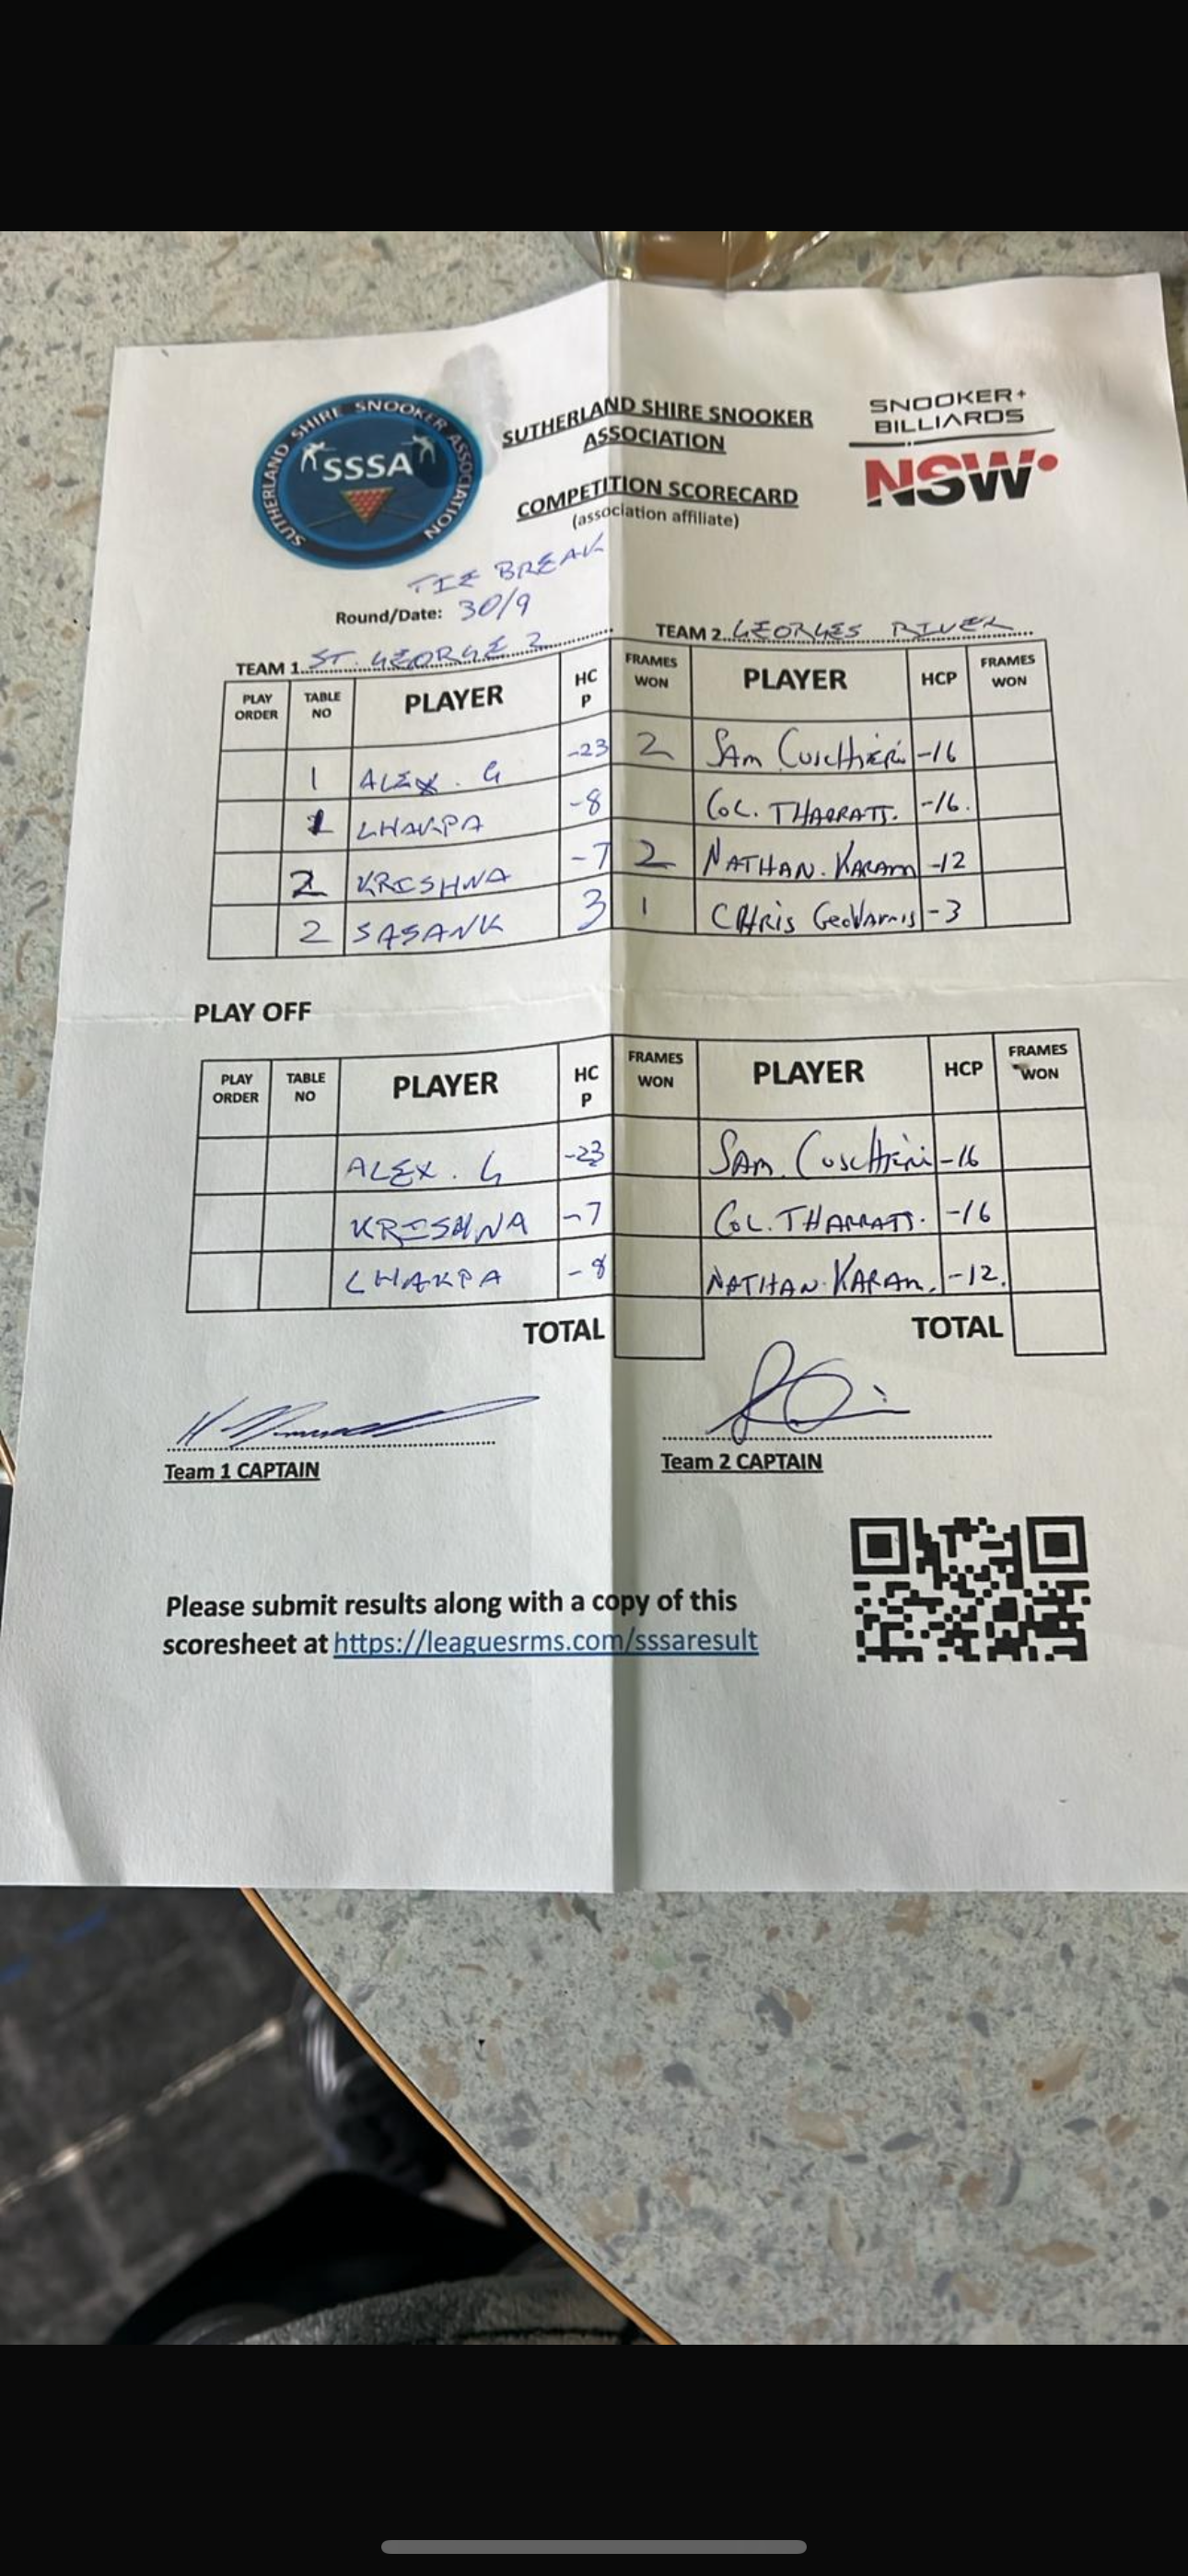 SUTHERLAND SHIRE SNOOKER ASSOCIATION
SSSA
SUTHERLAND SHIRE SNOOKER
ASSOCIATION
COMPETITION SCORECARD
(association affiliate)
SNOOKER+
BILLIARDS
NSW
TIE BREAK
Round/Date: 30/9
TEAM 1 ST. GEORGE 2 TEAM 2 GEORGES RIVER
PLAY ORDER TABLE NO PLAYER HCP FRAMES WON PLAYER HCP FRAMES WON
1 ALEX . G -23 2 SAM CUSCHIERI -16
1 LHAKPA -8 COL. THARRATT. -16.
2 KRISHNA -7 2 NATHAN. KARAM -12
2 SASANK 3 1 CHRIS -3
PLAY OFF
PLAY ORDER TABLE NO PLAYER HCP FRAMES WON PLAYER HCP FRAMES WON
ALEX . G -23 SAM. CUSCHIERI -16
KRISHNA -7 COL. THARRATT. -16
LHAKPA -8 NATHAN. KARAM. -12.
TOTAL TOTAL
Team 1 CAPTAIN Team 2 CAPTAIN
Please submit results along with a copy of this
scoresheet at https://leaguesrms.com/sssaresult